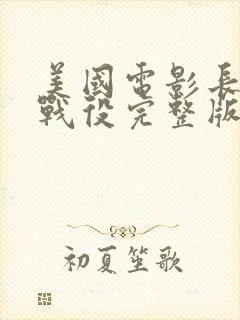 美國電影長
戰役完整版
初夏笙歌